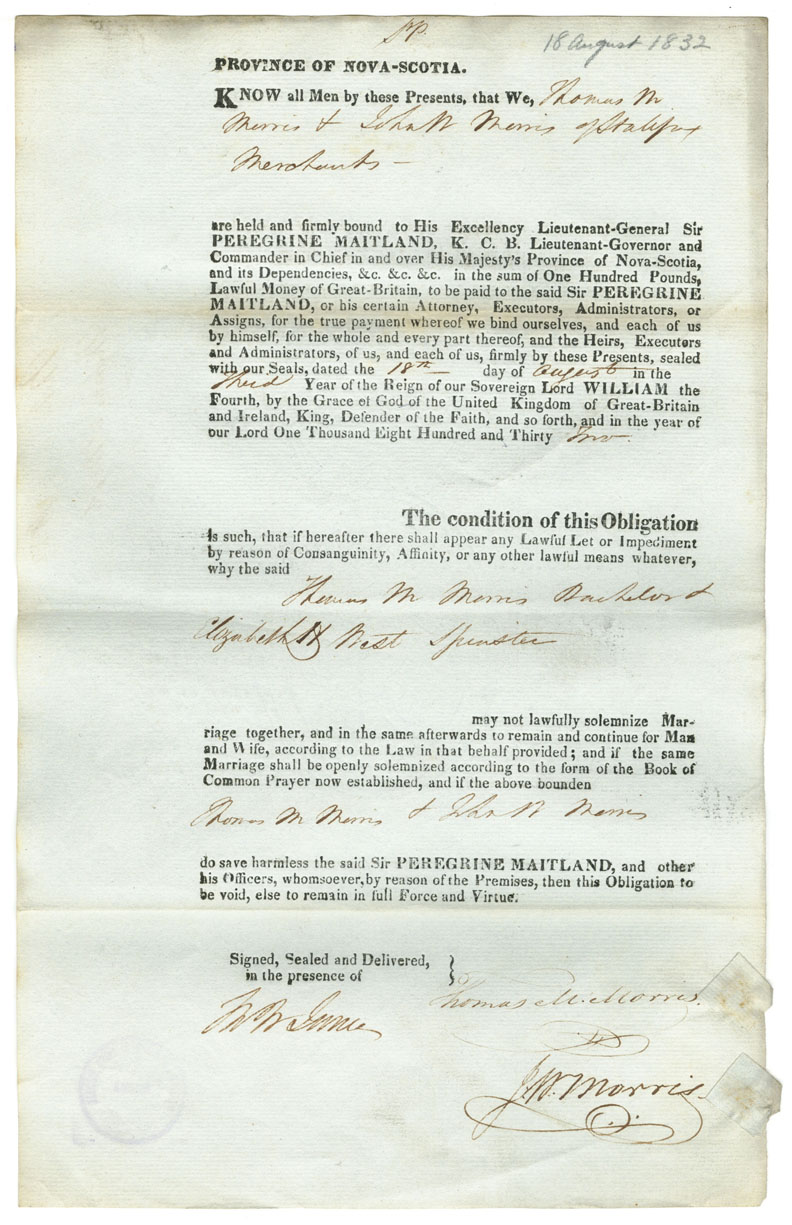 18 August 1832
PROVINCE OF NOVA-SCOTIA.
KNOW all Men by these Presents, that We, Thomas M
Morris & John W Morris of Halifax
Merchants —
are held and firmly bound to His Excellency Lieutenant-General Sir
PEREGRINE MAITLAND, K. C. B. Lieutenant-Governor and
Commander in Chief in and over His Majesty's Province of Nova-Scotia,
and its Dependencies, &c. &c. &c. in the sum of One Hundred Pounds,
Lawful Money of Great-Britain, to be paid to the said Sir PEREGRINE
MAITLAND, or his certain Attorney, Executors, Administrators, or
Assigns, for the true payment whereof we bind ourselves, and each of us
by himself, for the whole and every part thereof, and the Heirs, Executors
and Administrators, of us, and each of us, firmly by these Presents, sealed
with our Seals, dated the 18th day of August in the
Third Year of the Reign of our Sovereign Lord WILLIAM the
Fourth, by the Grace of God of the United Kingdom of Great-Britain
and Ireland, King, Defender of the Faith, and so forth, and in the year of
our Lord One Thousand Eight Hundred and Thirty Two.
The condition of this Obligation
Is such, that if hereafter there shall appear any Lawful Let or Impediment
by reason of Consanguinity, Affinity, or any other lawful means whatever,
why the said
Thomas M Morris Bachelor &
Elizabeth H West Spinster
may not lawfully solemnize Mar-
riage together, and in the same afterwards to remain and continue for Man
and Wife, according to the Law in that behalf provided; and if the same
Marriage shall be openly solemnized according to the form of the Book of
Common Prayer now established, and if the above bounden
Thomas M Morris & John W Morris
do save harmless the said Sir PEREGRINE MAITLAND, and other
his Officers, whomsoever, by reason of the Premises, then this Obligation to
be void, else to remain in full Force and Virtue.
Signed, Sealed and Delivered,
in the presence of
Thomas M. Morris.
J.W. Morris.